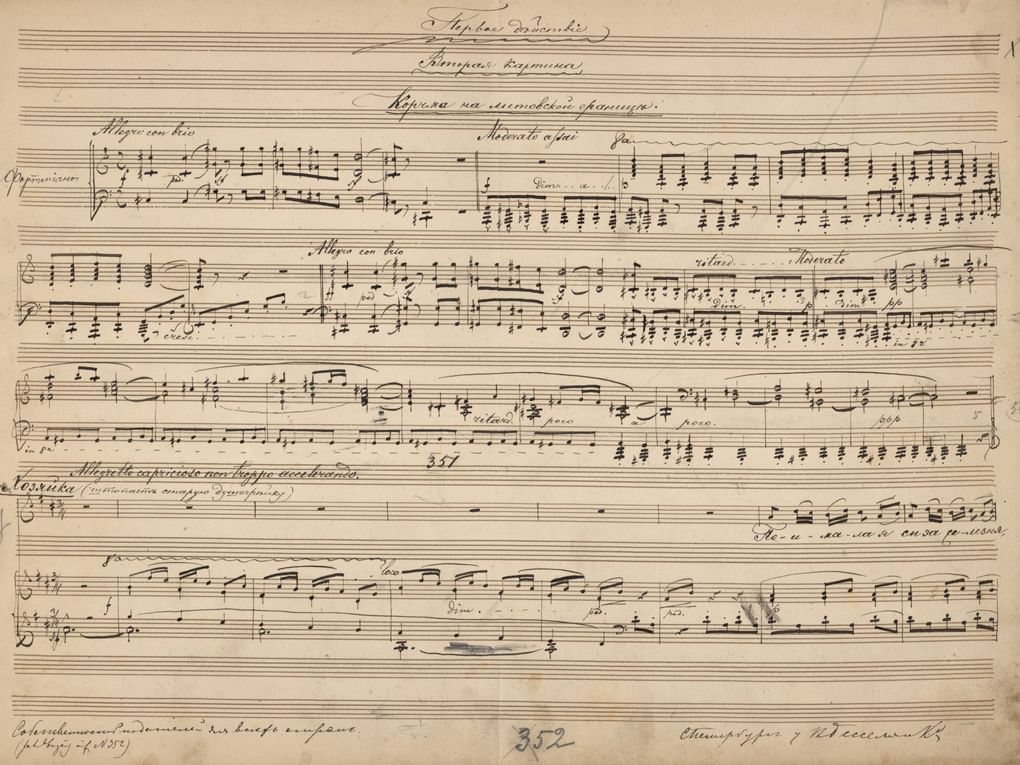 Первое дѣйствіе
Вторая картина
Корчма на литовской границѣ.
Allegro con brio
Moderato assai
8a
Фортепіано
f
ped.
sf
f
dim... a..
Allegro con brio
ritard - - - - - Moderato
f
ped
sf
dim.
p
dim
pp
cresc.
in 8a
ritard.
poco
a
poco.
ppp
5
in 8a
351
Allegretto capricioso non troppo accelerando.
Хозяйка (штопаетъ старую душегрѣйку)
По-и-ма-ла я сиза се-лезня,
8a
loco
f
dim. - - - -
ped.
ped.
Собственность издателей для всѣхъ странъ.
352
С.Петербургъ у В. Бесселя и Кº